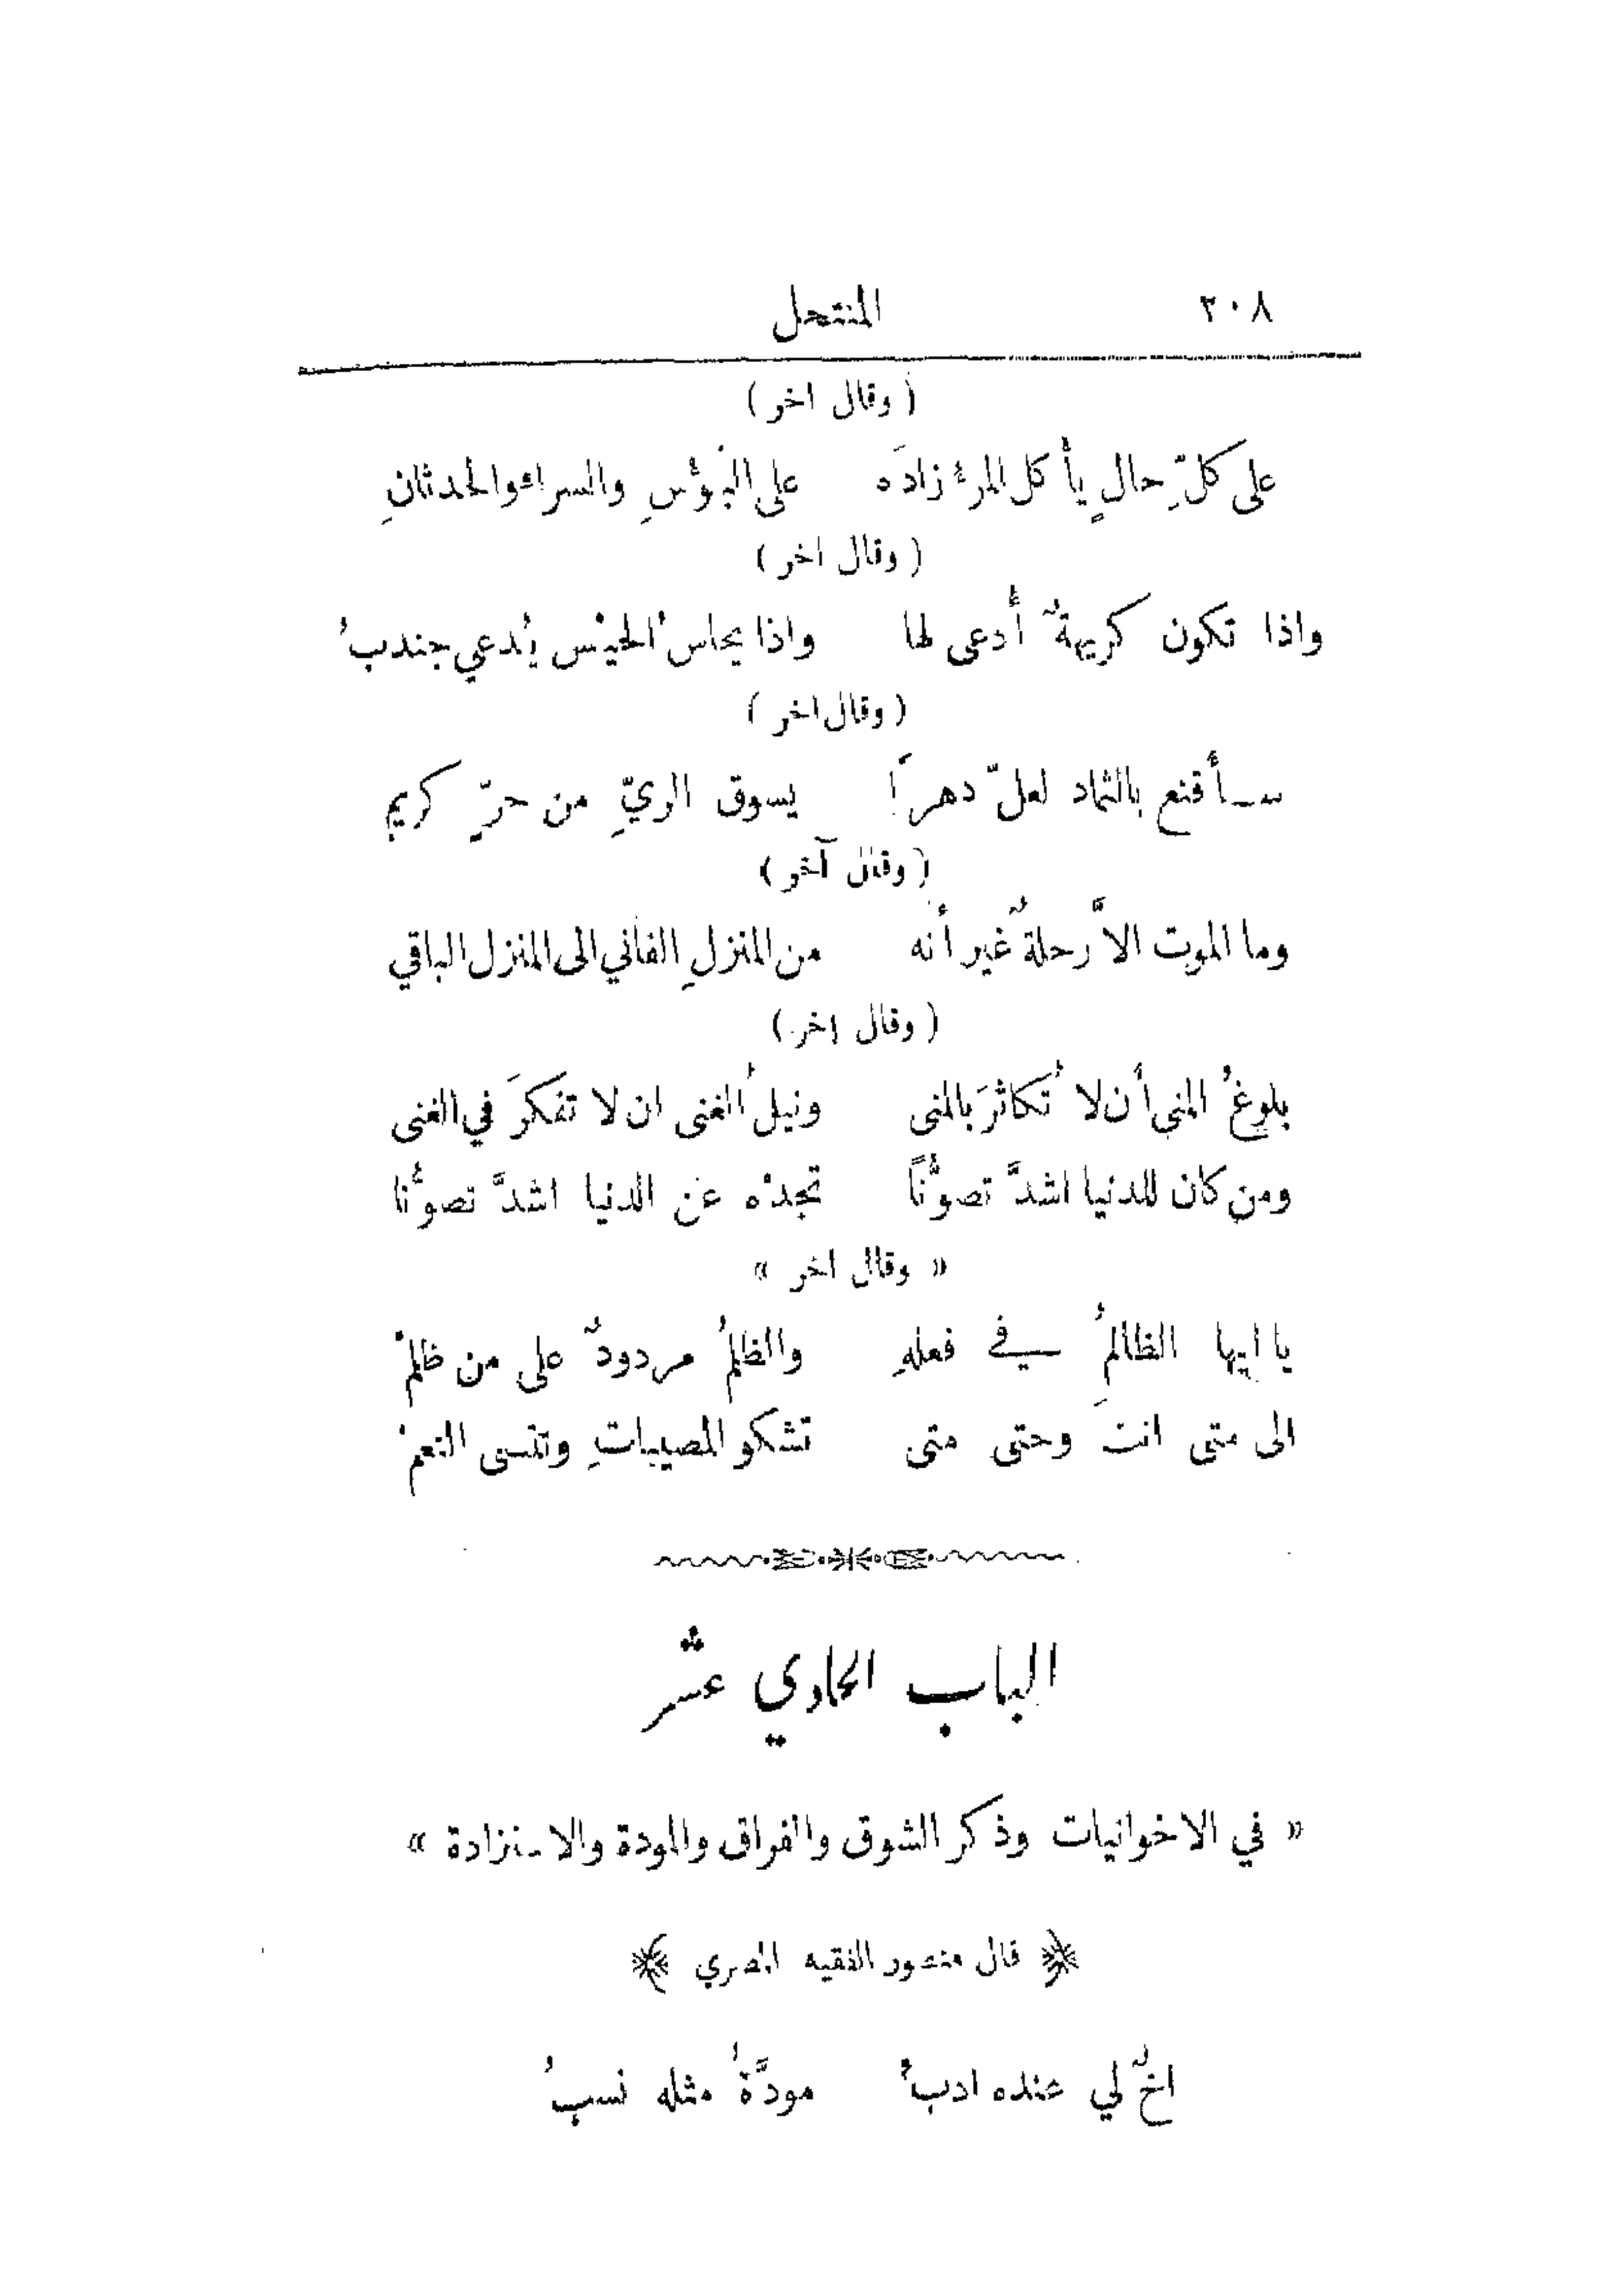 ٢٠٨ المنتحل
( وقال اخر )
على كلِّ حالٍ يأكل المرءُ زادَه على البؤسِ والسراءِ والحدثانِ
( وقال اخر )
واذا تكون كريهةٌ أُدعى لها واذا يحاسُ الحيْس يُدعي جندبُ
( وقال اخر )
سأقنع بالثماد لعلّ دهراً يسوق الريِّ من حرٍّ كريم
( وقال آخر )
وما الموت الاَّ رحلةٌ غير أنه من المنزلِ الفاني الى المنزل الباقي
( وقال اخر )
بلوغُ المني أن لا تُكاثرَ بالمنى ونيلُ الغنى ان لا تفكرَ في الغنى
ومن كان للدنيا اشدَّ تصوُّناً تجدْه عن الدنيا اشدَّ تصوُّنا
« وقال اخر »
يا ايها الظالمُ في فعلهِ والظلمُ مردودٌ على من ظلمْ
الى متى انتَ وحتى متى تشكو المصيباتِ وتنسى النعمْ
الباب الحادي عشر
« في الاخوانيات وذكر الشوق والفراق والمودة والاستزادة »
﴿ قال منصور الفقيه المصري ﴾
اخٌ لي عنده ادبُ مودَّةُ مثله نسبُ